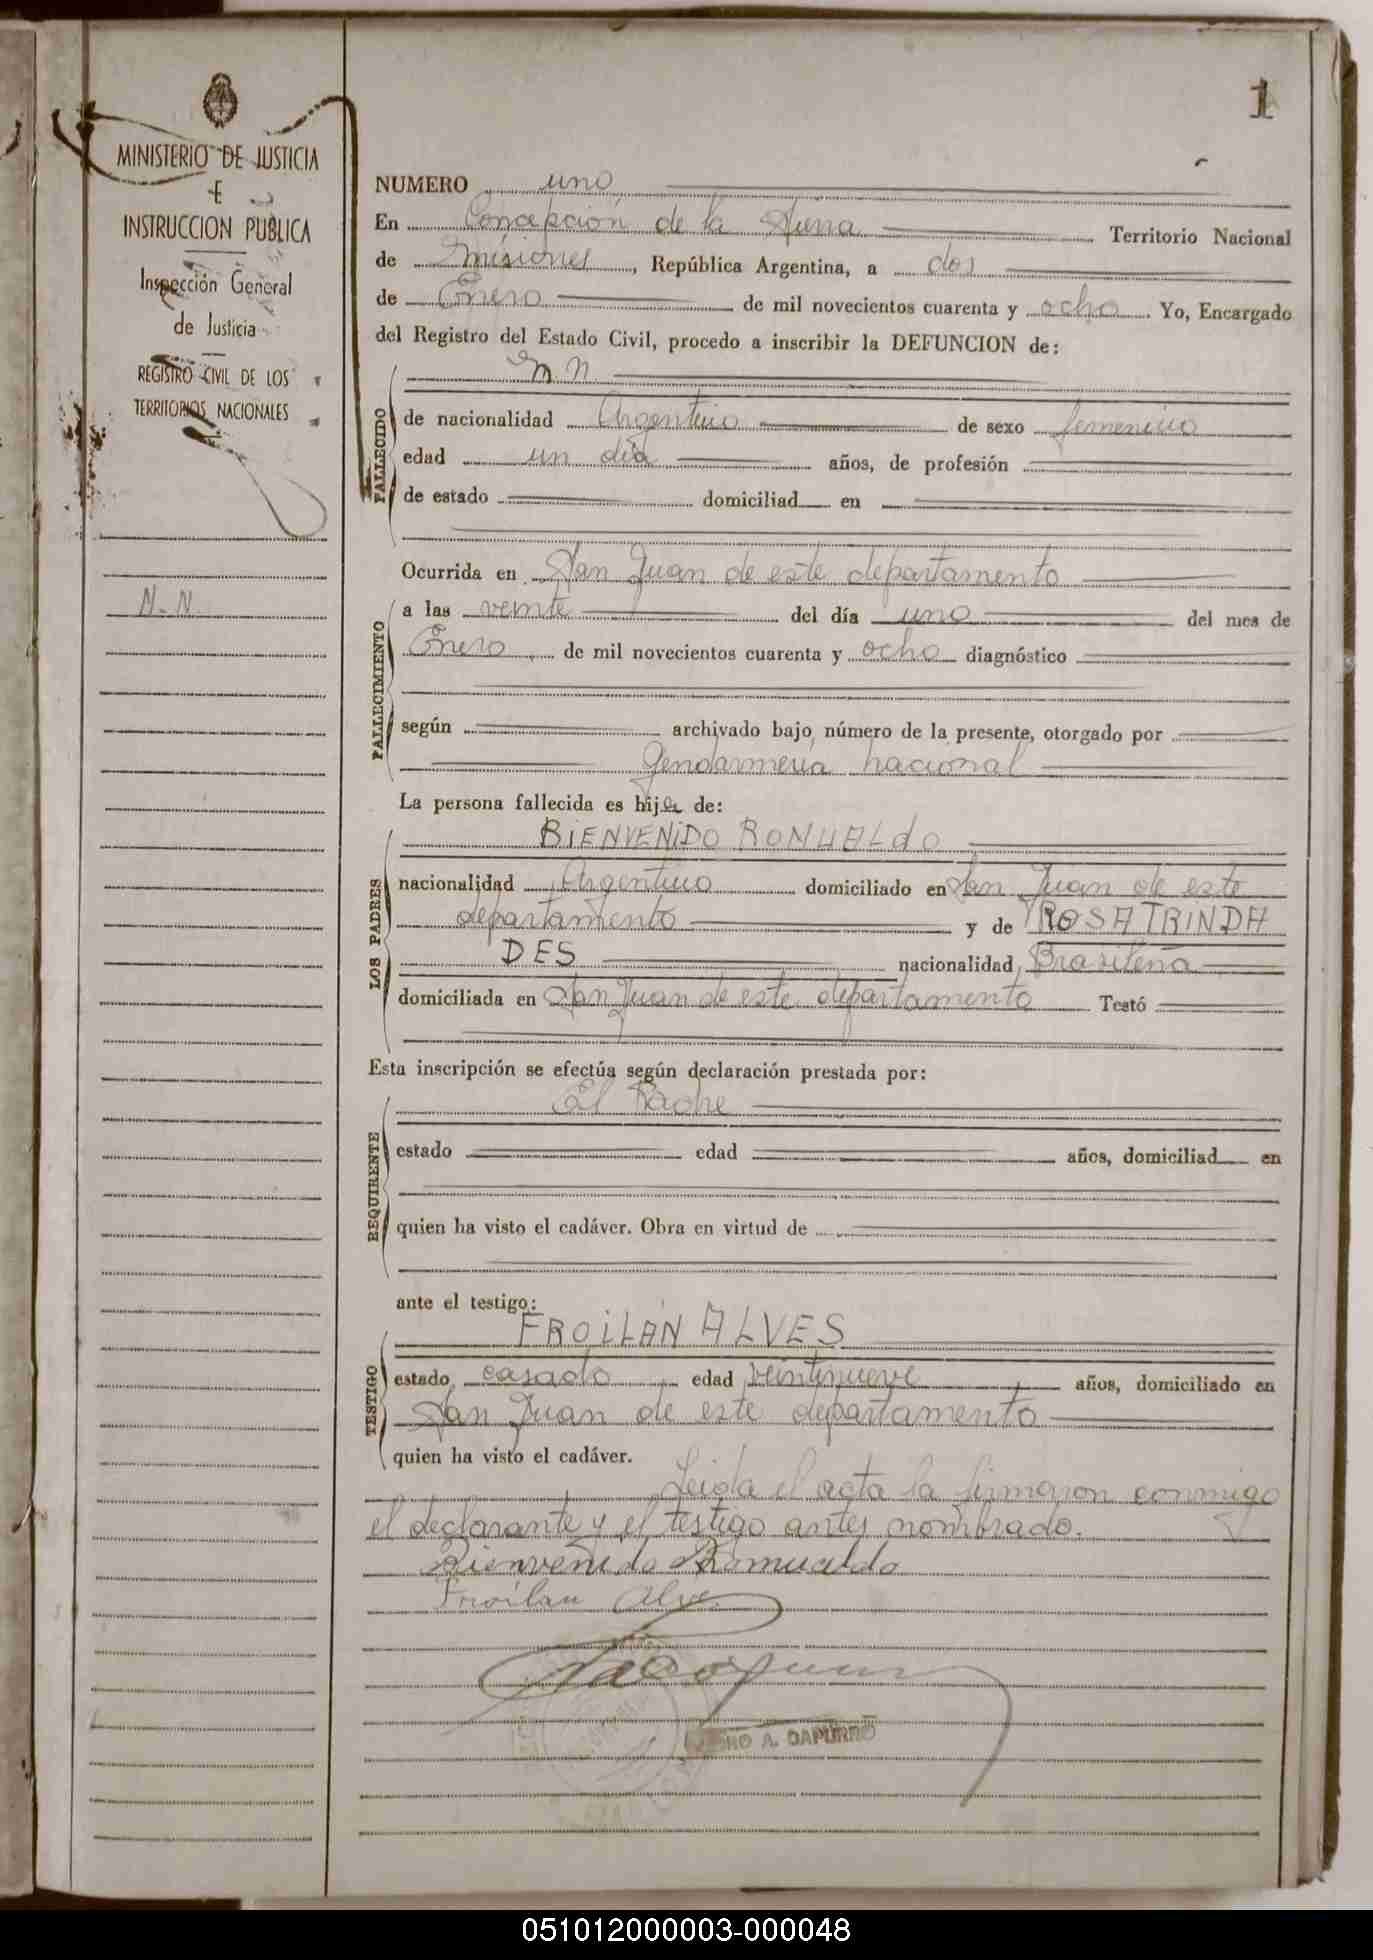 1
MINISTERIO DE JUSTICIA
E
INSTRUCCION PUBLICA
Inspección General
de Justicia
REGISTRO CIVIL DE LOS
TERRITORIOS NACIONALES
N. N.
NUMERO uno
En Concepción de la Sierra Territorio Nacional
de Misiones, República Argentina, a dos
de Enero de mil novecientos cuarenta y ocho. Yo, Encargado
del Registro del Estado Civil, procedo a inscribir la DEFUNCION de:
N. N.
FALLECIDO
de nacionalidad Argentino de sexo femenino
edad un día años, de profesión
de estado domiciliad en
Ocurrida en San Juan de este departamento
FALLECIMIENTO
a las veinte del día uno del mes de
Enero, de mil novecientos cuarenta y ocho diagnóstico
según archivado bajo número de la presente, otorgado por
Gendarmeria nacional
La persona fallecida es hija de:
LOS PADRES
BIENVENIDO ROMUALDO
nacionalidad Argentino domiciliado en San Juan de este
departamento y de ROSA TRINDA
DES nacionalidad Brasileña
domiciliada en San Juan de este departamento Testó
Esta inscripción se efectúa según declaración prestada por:
REQUIRENTE
El Padre
estado edad años, domiciliad en
quien ha visto el cadáver. Obra en virtud de
ante el testigo:
TESTIGO
FROILÁN ALVES
estado casado edad veintinueve años, domiciliado en
San Juan de este departamento
quien ha visto el cadáver.
Leida el acta la firmaron conmigo
el declarante y el testigo antes nombrado.
Bienvenido Romualdo
Froilan Alve
A. DAPURRO
051012000003-000048